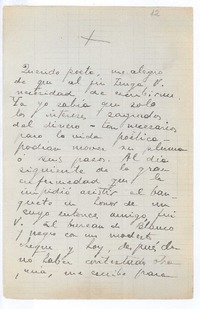 Querido poeta, me alegro
de que al fin tenga V.
necesidad de escribirme
Ya yo sabía que solo
los intereses sagrados
del dinero - tan necesarios
para la vida poética -
podrían mover su pluma
ó sus pasos. Al día
siguiente de la gran
enfermedad que le
impidió asistir al ban-
quete en honor de un
suyo entonces amigo, fué
V. al bureau de Blanco
y negro con un modesto
cheque y hoy, después de
no haber contestado
una, me escribe para